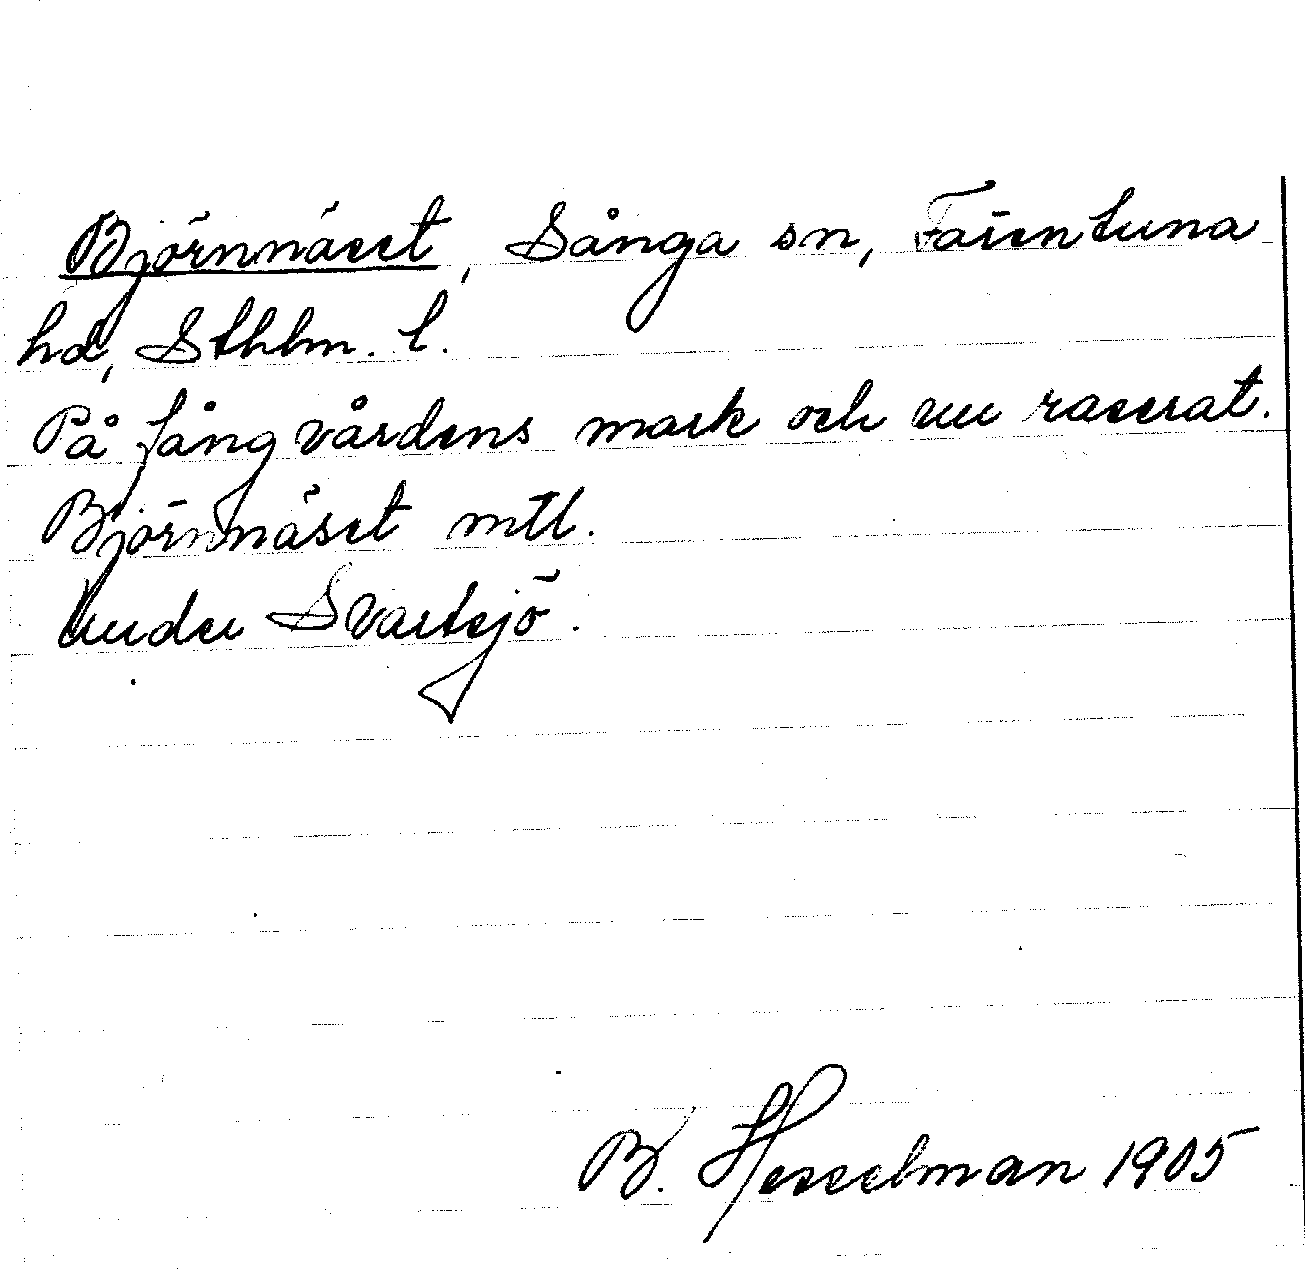 Björnnäset, Sånga sn, Färentuna
hd, Sthlm. l.
På fångvårdens mark och nu raserat.
Björnnäset mtl.
under Svartsjö.
B. Hesselman 1905